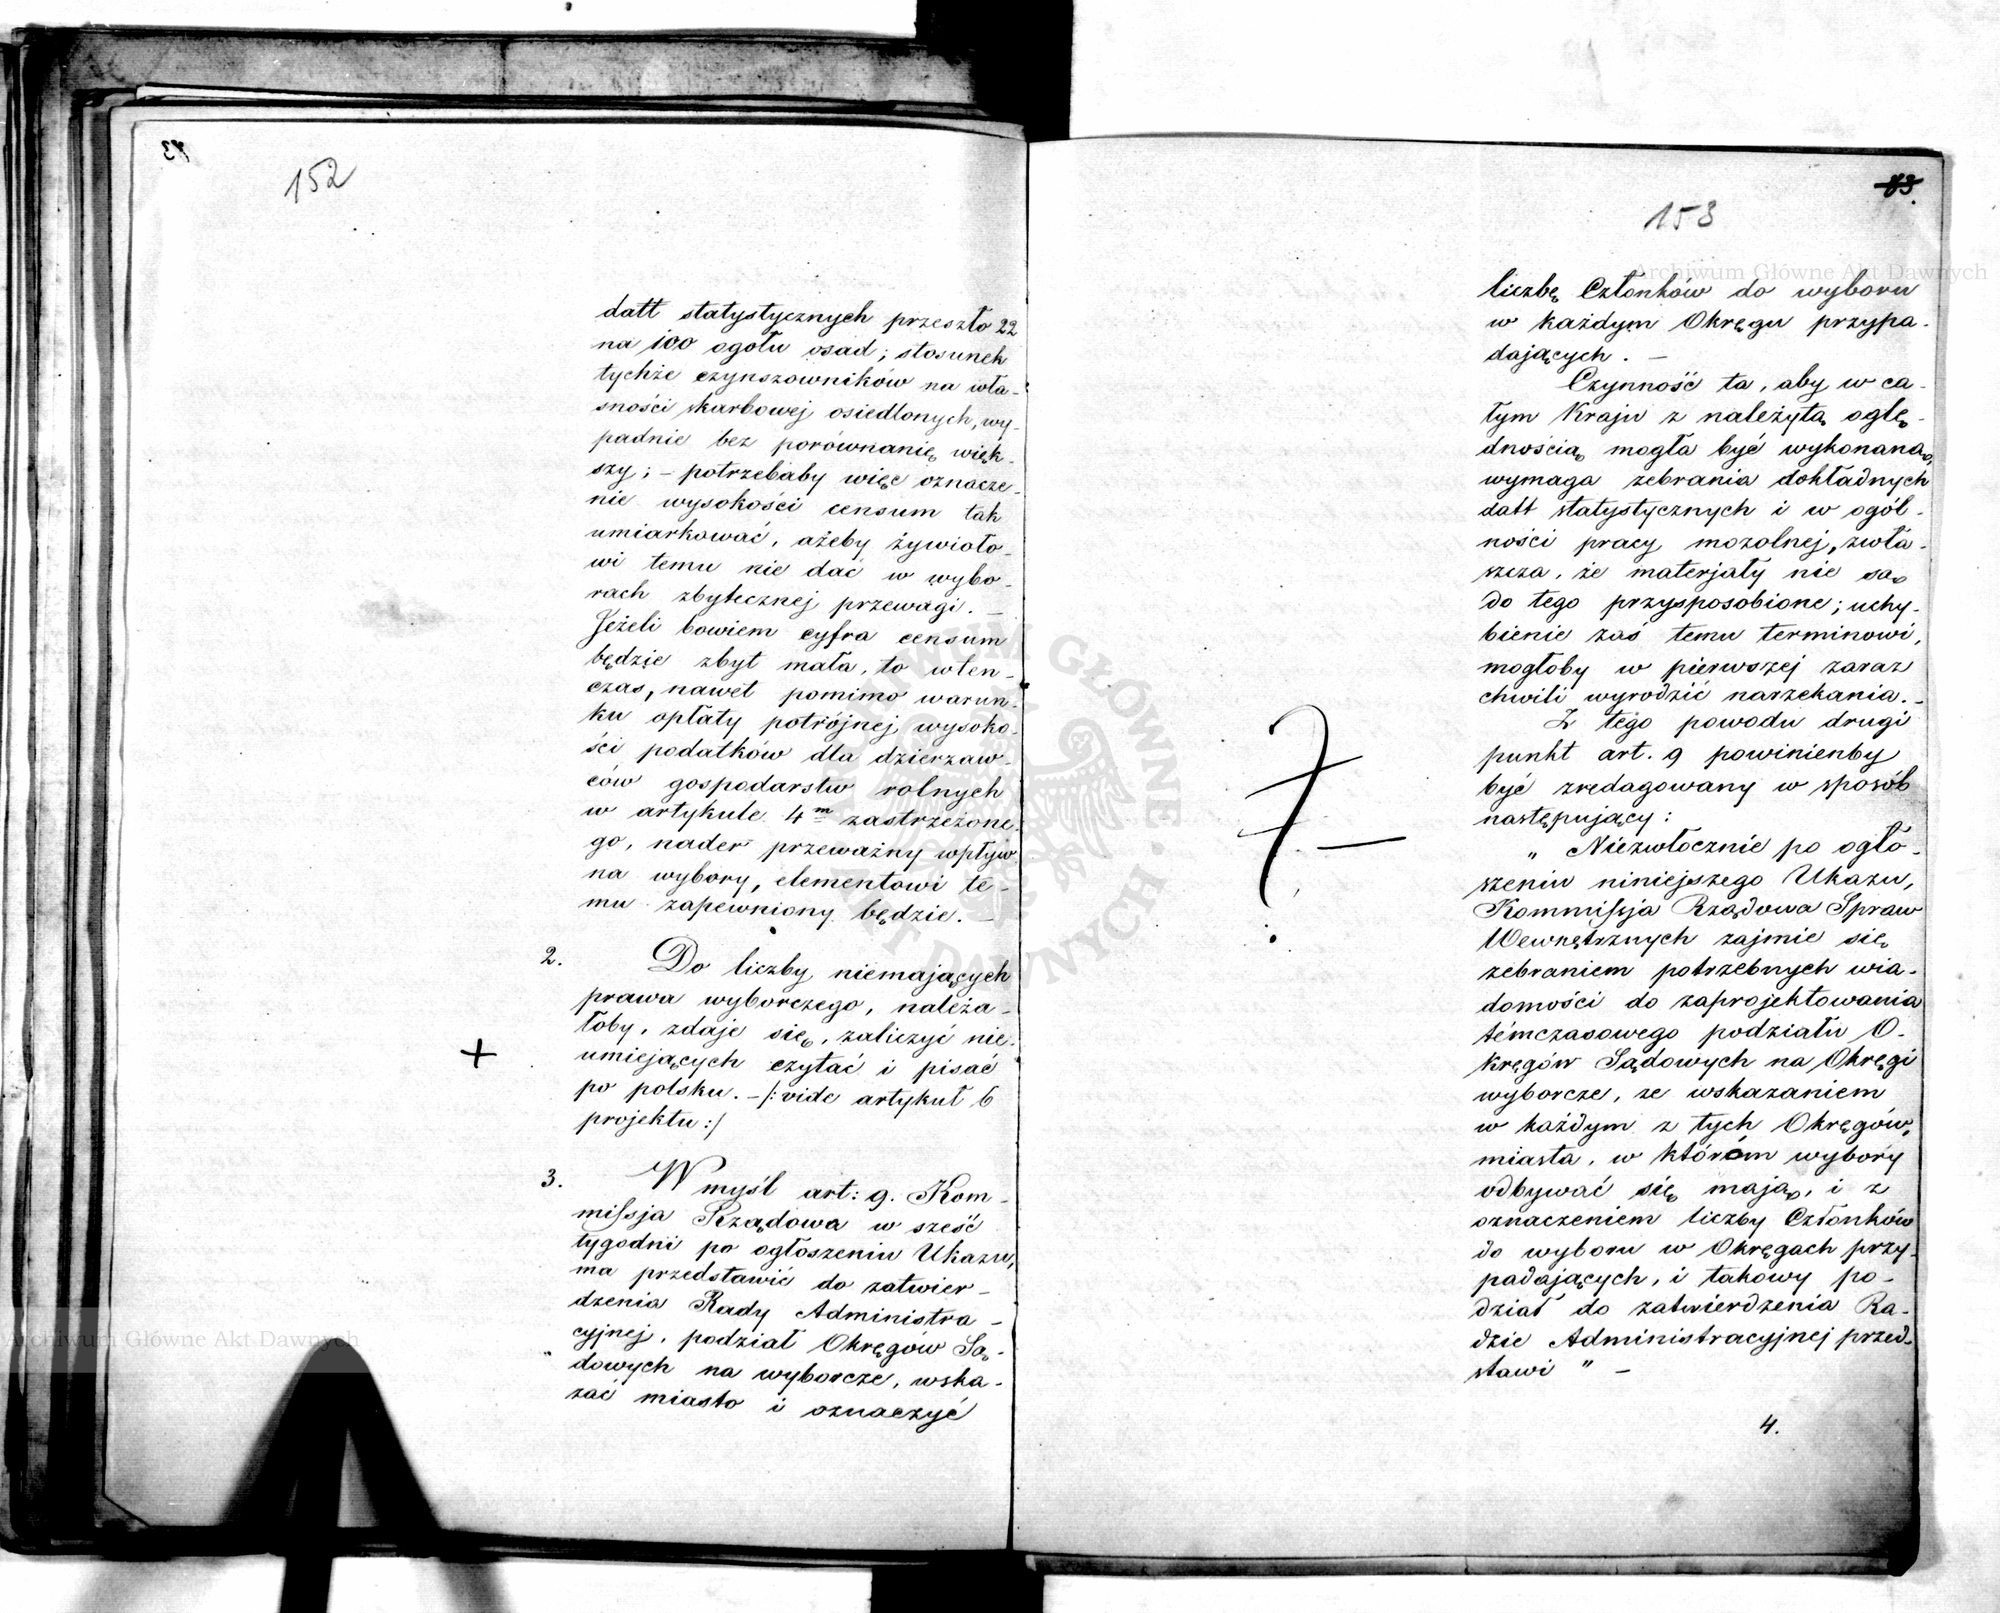 152
datt statystycznych przeszło 22
na 100 ogołu osad; stosunek
tychże czynszowników na wła-
sności skarbowej osiedlonych, wy-
padnie bez porównanię więk-
szy; – potrzebaby więc oznacze-
nie wysokości censum tak
umiarkować, ażeby żywioło-
wi temu nie dać w wybo-
rach zbytecznej przewagi. –
Jeżeli bowiem cyfra censum
będzie zbyt mała, to wten-
czas, nawet pomimo warun-
ku opłaty potrójnej wysoko-
ści podatków dla dzierzaw-
ców gospodarstw rolnych
w artykule 4m zastrzeżone-
go, nader przeważny wpływ
na wybory, elementowi te-
mu zapewniony będzie. –
2. Do liczby niemających
prawa wyborczego, należa-
łoby, zdaje się, zaliczyć nie-
+ umiejących czytać i pisać
po polsku. – /: vide artykuł 6
projektu :/
3. W myśl art: 9. Kom-
missja Rządowa w sześć
tygodni po ogłoszeniu Ukazu,
ma przedstawić do zatwier-
dzenia Rady Administra-
cyjnej, podział Okręgów Są-
dowych na wyborcze, wska-
zać miasto i oznaczyć
83.
153
liczbę Członków do wyboru
w każdym Okręgu przypa-
dających. –
Czynność ta, aby w ca-
łym Kraju z należytą oglę-
dnością mogła być wykonaną,
wymaga zebrania dokładnych
datt statystycznych i w ogól-
ności pracy mozolnej, zwła-
szcza, że materjały nie są
do tego przysposobione; uchy-
bienie zaś temu terminowi,
mogłoby w pierwszej zaraz
chwili wyrodzić narzekania. –
Z tego powodu drugi
punkt art. 9 powinienby
być zredagowany w sposób
następujący:
„ Niezwłocznie po ogło-
szeniu niniejszego Ukazu,
Kommissja Rządowa Spraw
Wewnętrznych zajmie się
zebraniem potrzebnych wia-
domości do zaprojektowania
témczasowego podziału O-
kręgów Sądowych na Okręgi
wyborcze, ze wskazaniem
w każdym z tych Okręgów,
miasta, w którém wybory
odbywać się mają, i z
oznaczeniem liczby Członków
do wyboru w Okręgach przy-
padających, i takowy po-
dział do zatwierdzenia Ra-
dzie Administracyjnej przed-
stawi " –
4.
Archiwum Główne Akt Dawnych
Archiwum Główne Akt Dawnych